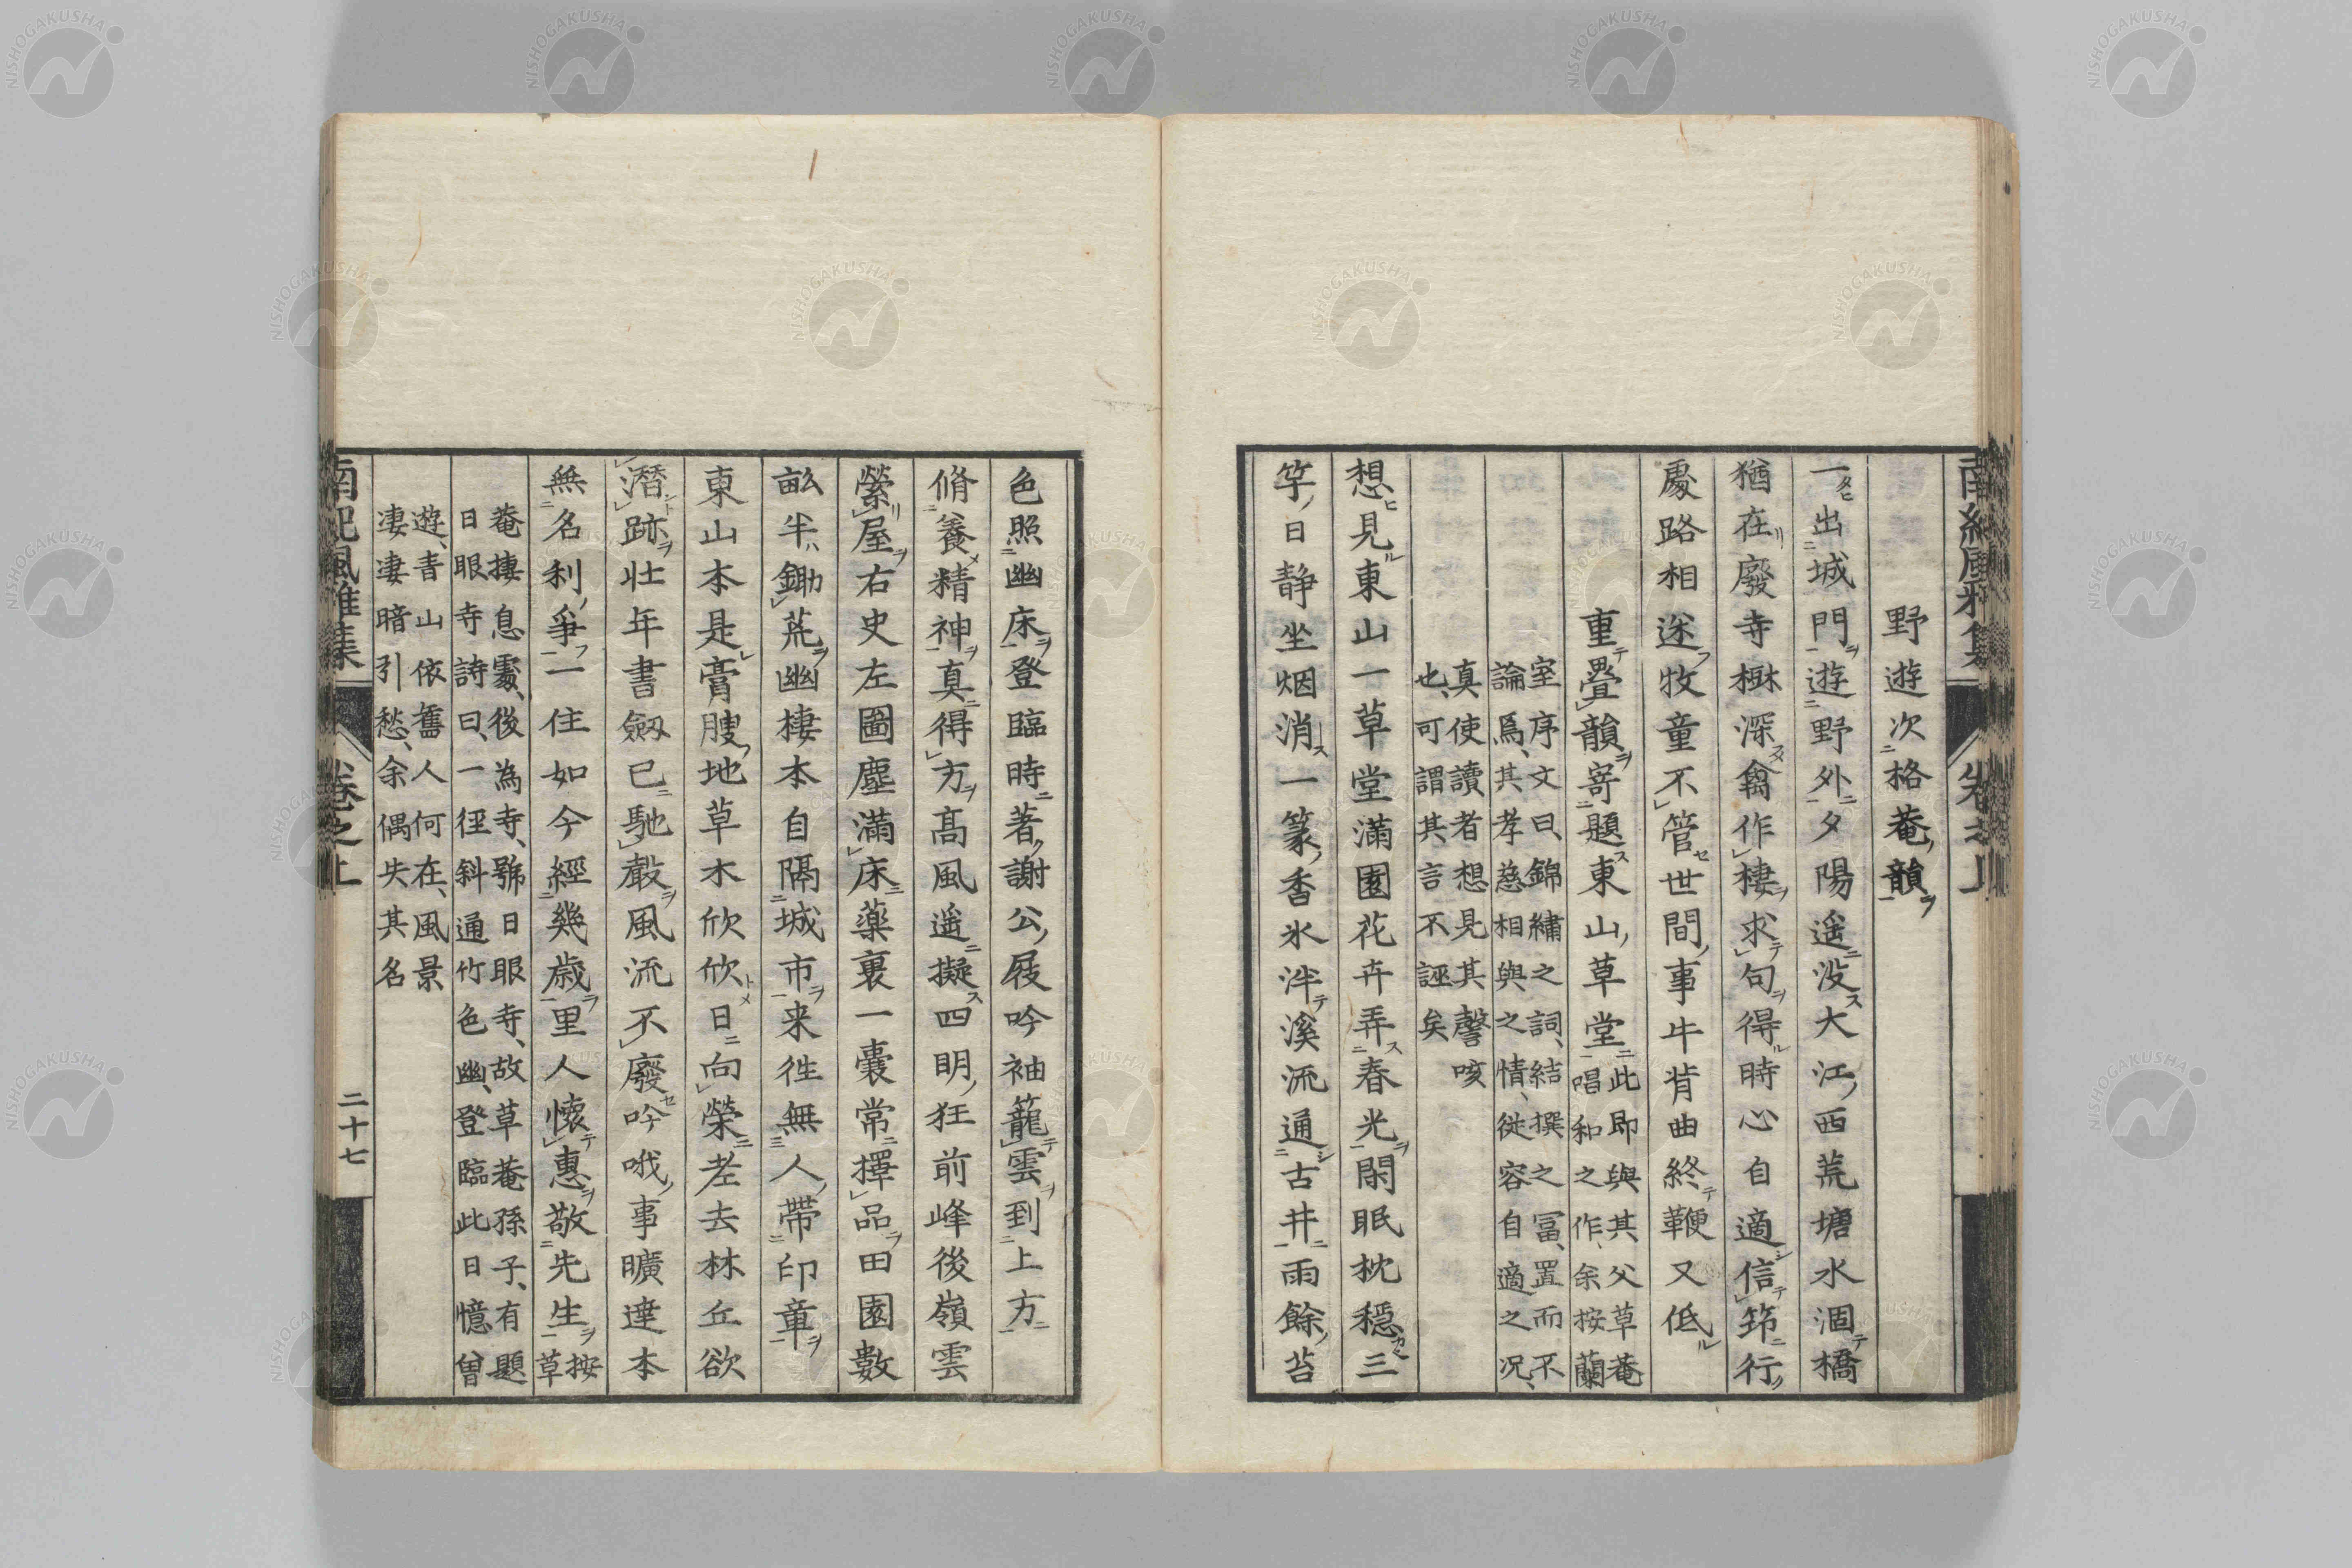 野遊次格菴韻
一出城門遊野外夕陽遥没大江西荒塘水涸橋
猶在廢寺樹深禽作棲求句得時心自適信筇行
處路相迷牧童不管世間事牛背曲終鞭又低
重疊韻寄題東山草堂
此即與其父草菴
唱和之作、余按蘭
室序文曰、錦繡之詞、結撰之冨、置而不
論焉、其孝慈相與之情、従容自適之况、
真使讀者想見其謦咳
也、可謂其言不誣矣
想見東山一草堂滿園花卉弄春光閑眠枕穩三
竿日静坐烟消一篆香氷泮溪流通古井雨餘苔
色照幽床登臨時著謝公屐吟袖籠雲到上方
脩養精神真得方髙風遥擬四明狂前峰後嶺雲
縈屋右史左圖塵滿床薬裹一嚢常擇品田園數
畝半鋤荒幽棲本自隔城市来徃無人帶印章
東山本是膏腴地草木欣欣日向榮老去林丘欲
潛跡壮年書劔已馳聲風流不廢吟哦事曠達本
無名利爭一住如今經幾歳里人懐惠敬先生
按
草
菴捿息處、後為寺、號日眼寺、故草菴孫子、有題
日眼寺詩曰、一徑斜通竹色幽、登臨此日憶曽
遊、青山依舊人何在、風景
凄凄暗引愁、余偶失其名
南紀風雅集
卷之上
二十七
NISHOGAKUSHA